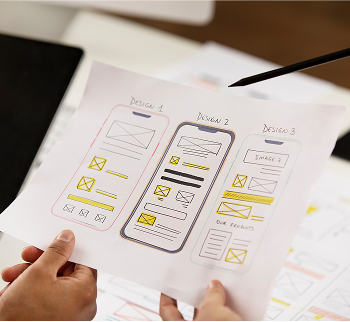 DESIGN 1
DESIGN 2
DESIGN 3
IMAGE
OUR PRODUCTS